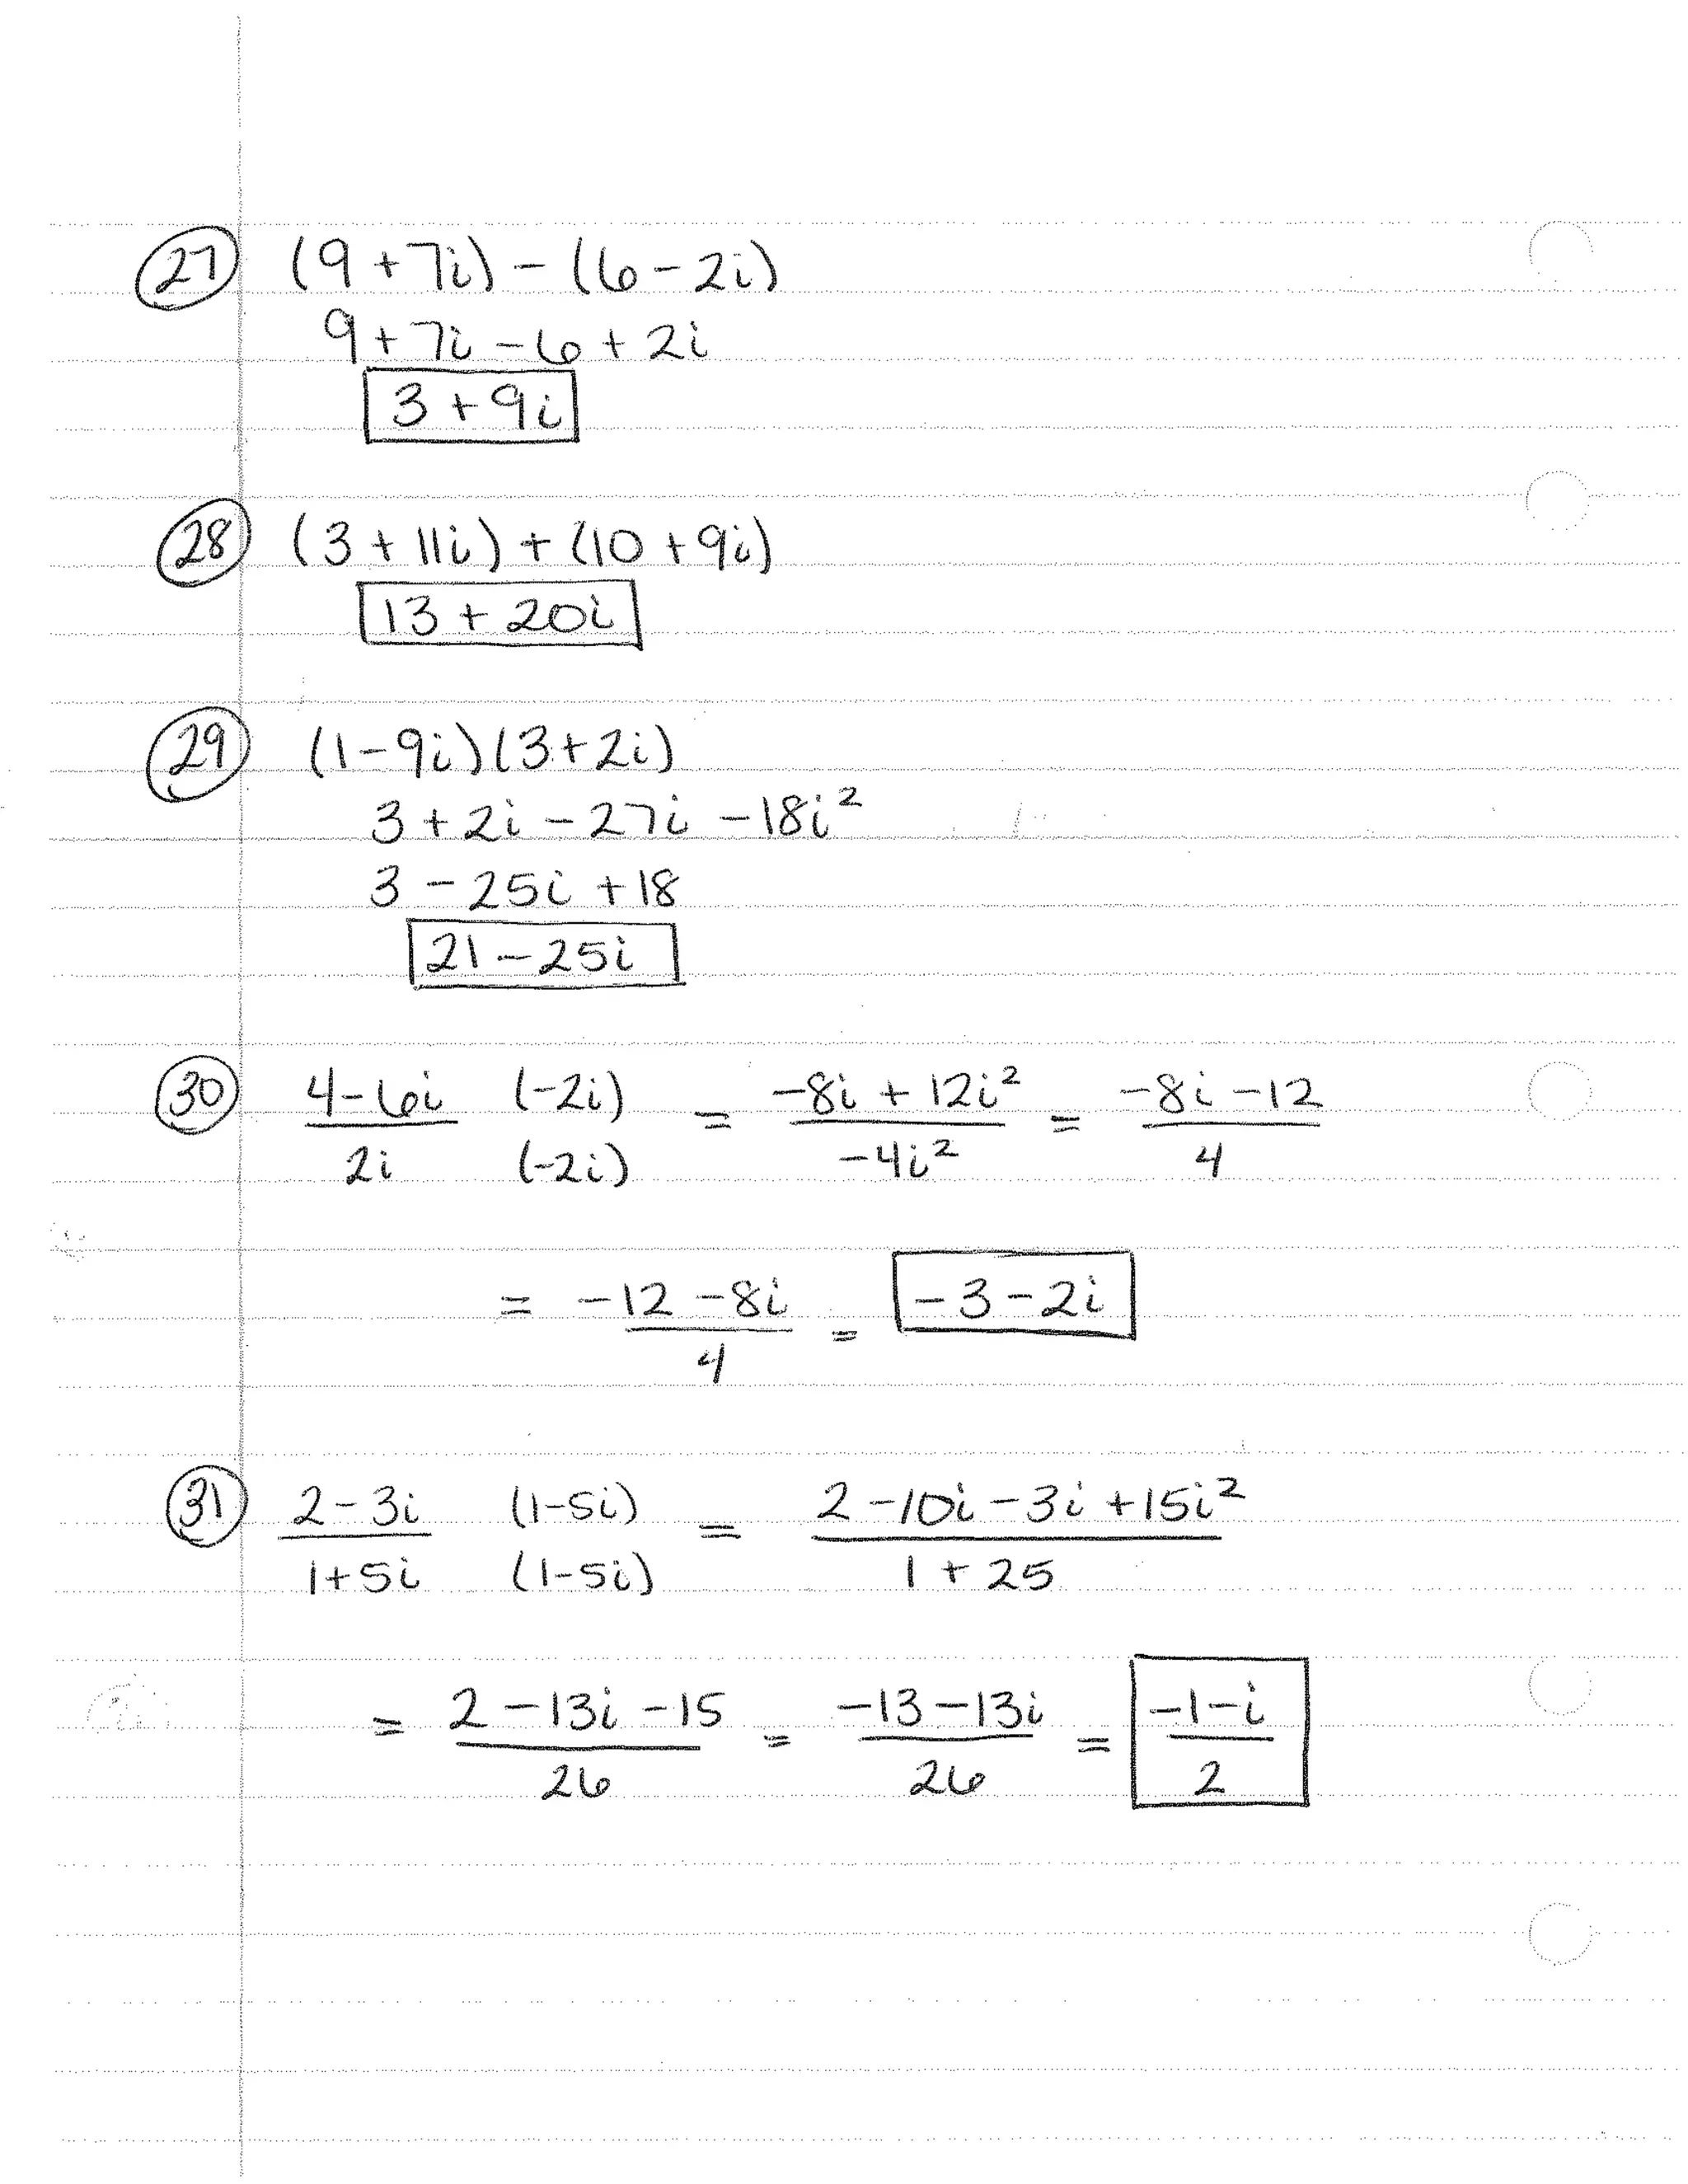 27 (9+7i) - (6-2i)
9+7i-6+2i
3+9i
28 (3+11i)+(10+9i)
13+20i
29 (1-9i)(3+2i)
3+2i-27i-18i²
3-25i+18
21-25i
30 4-6i (-2i) = -8i+12i² = -8i-12
2i (-2i) -4i² 4
= -12-8i = -3-2i
4
31 2-3i (1-5i) = 2-10i-3i+15i²
1+5i (1-5i) 1+25
= 2-13i-15 = -13-13i = -1-i
26 26 2